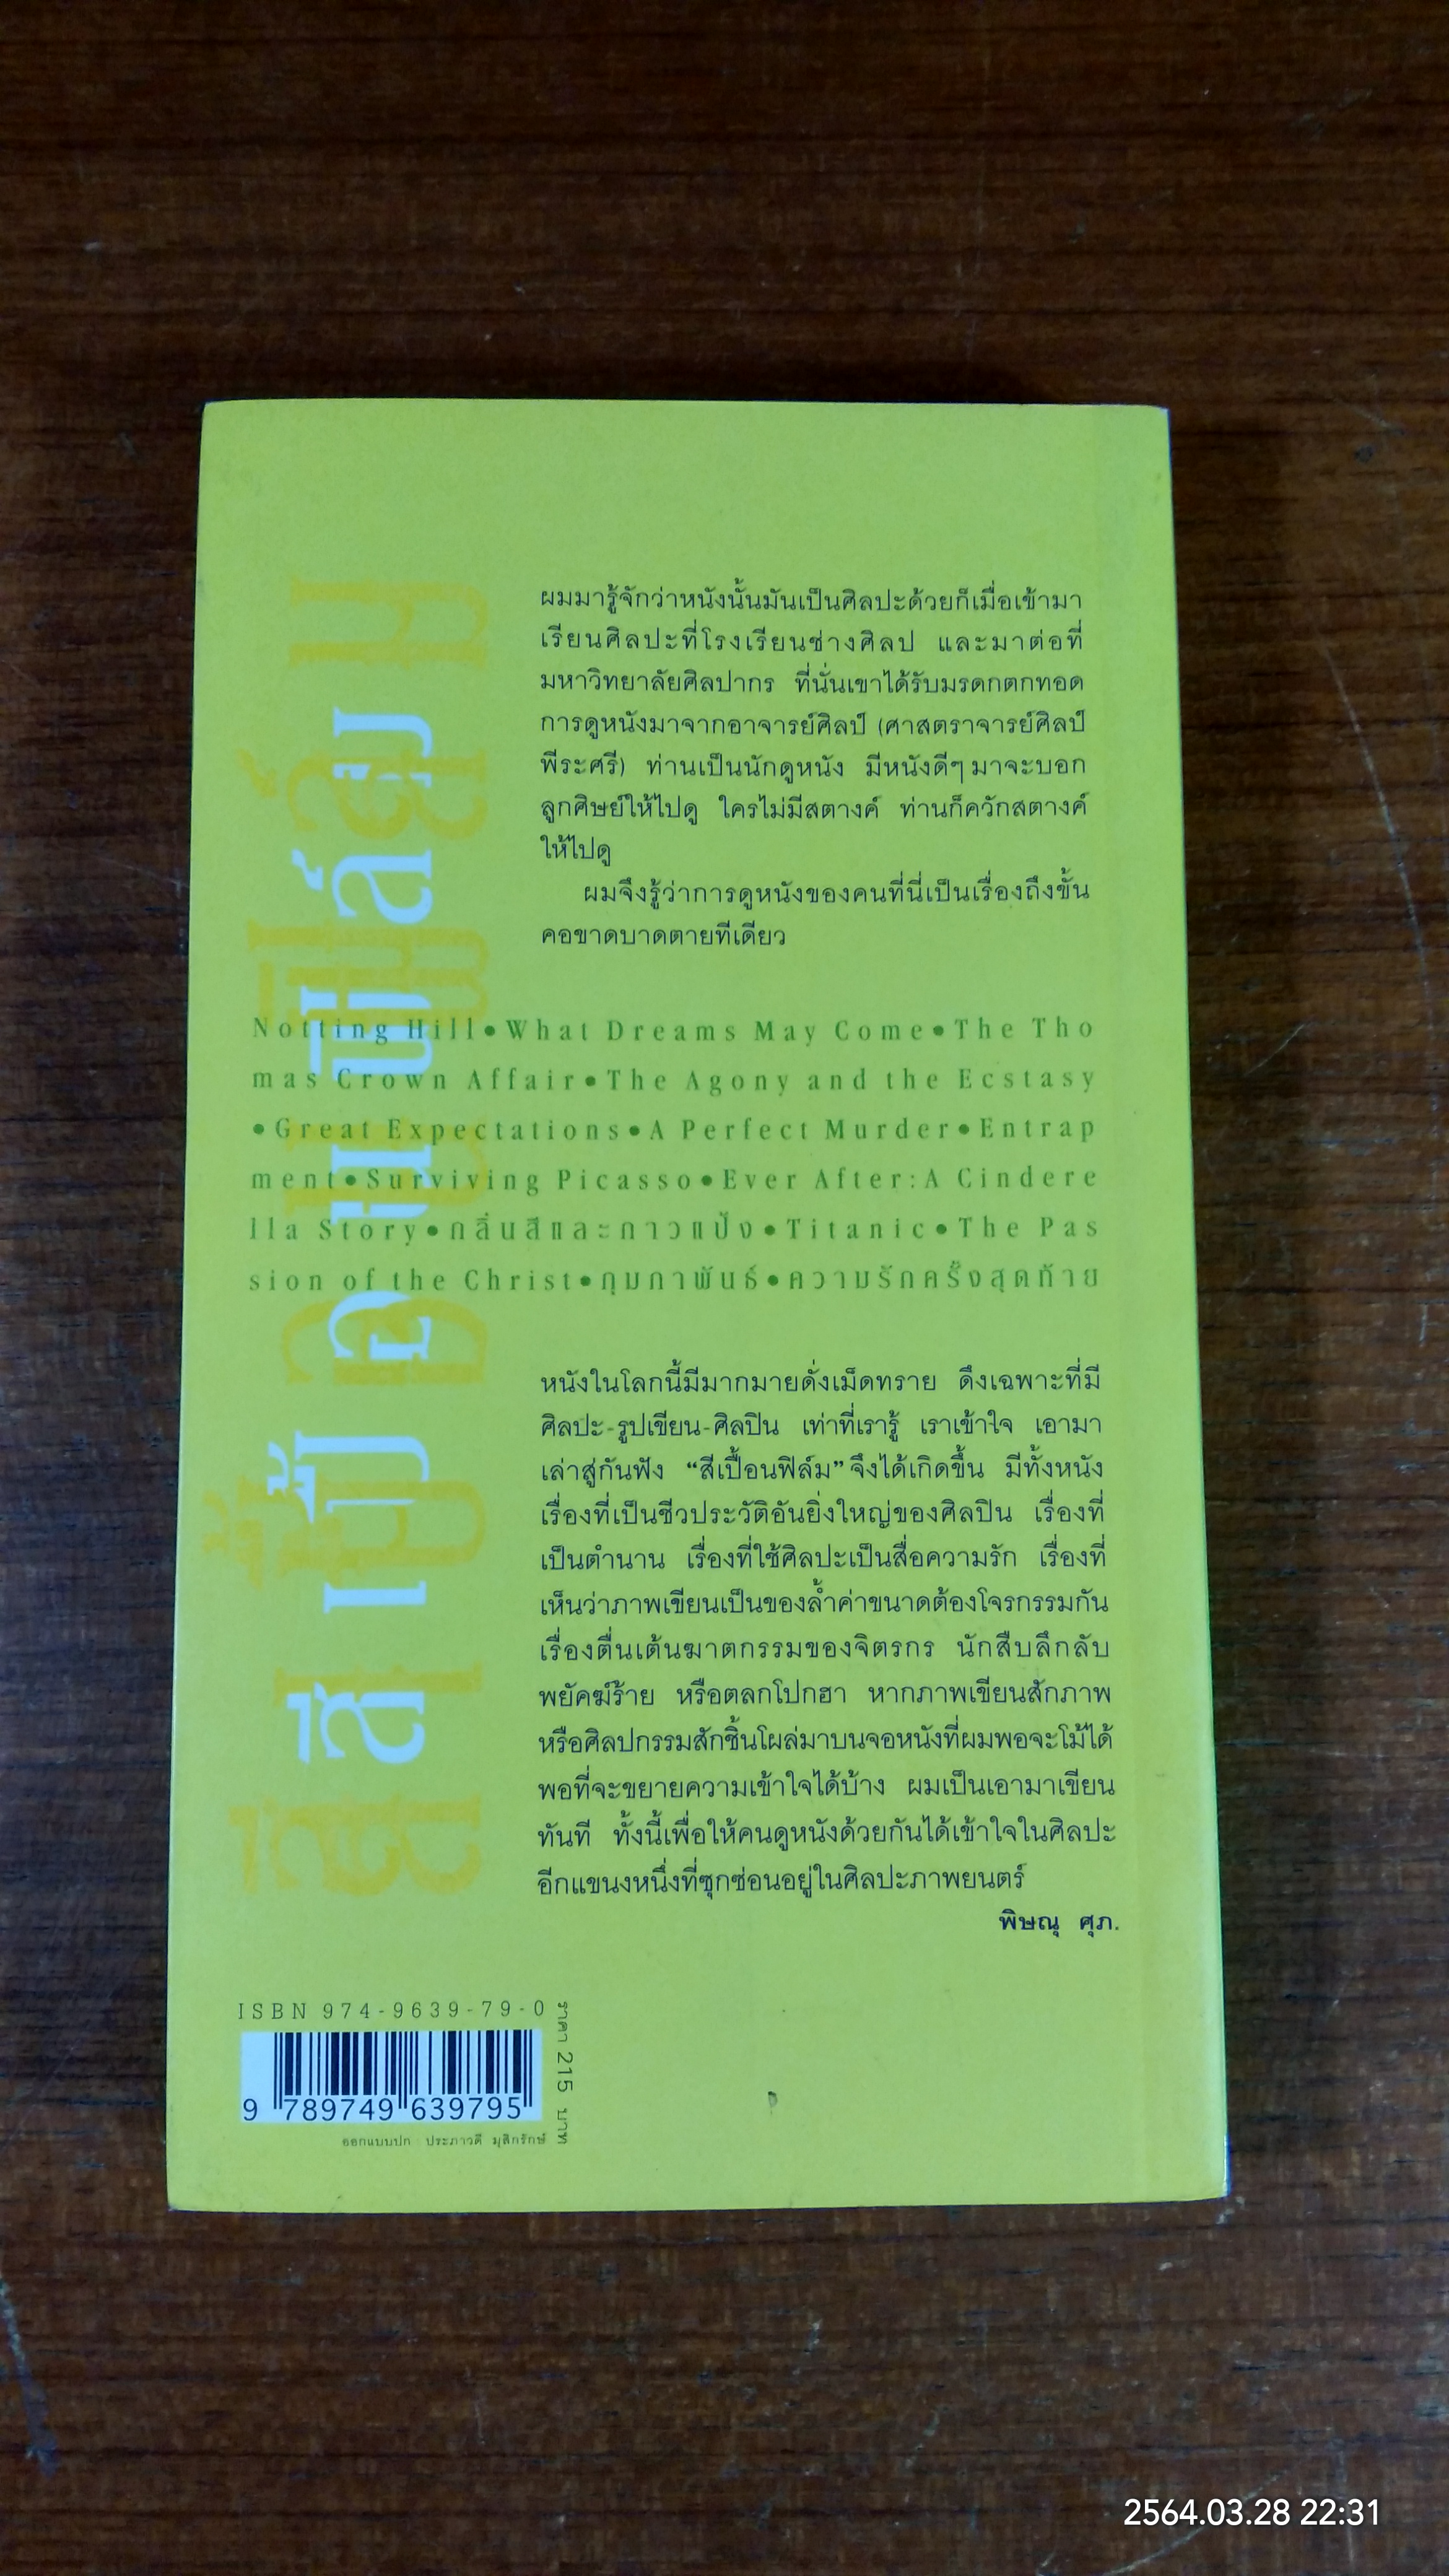 สีเปื้อนฟิล์ม
ผมมารู้จักว่าหนังนั้นมันเป็นศิลปะด้วยก็เมื่อเข้ามา
เรียนศิลปะที่โรงเรียนช่างศิลป และมาต่อที่
มหาวิทยาลัยศิลปากร ที่นั่นเขาได้รับมรดกตกทอด
การดูหนังมาจากอาจารย์ศิลป์ (ศาสตราจารย์ศิลป์
พีระศรี) ท่านเป็นนักดูหนัง มีหนังดีๆ มาจะบอก
ลูกศิษย์ให้ไปดู ใครไม่มีสตางค์ ท่านก็ควักสตางค์
ให้ไปดู
ผมจึงรู้ว่าการดูหนังของคนที่นี่เป็นเรื่องถึงขั้น
คอขาดบาดตายทีเดียว
Notting Hill•What Dreams May Come•The Tho
mas Crown Affair•The Agony and the Ecstasy
•Great Expectations•A Perfect Murder•Entrap
ment•Surviving Picasso•Ever After:A Cindere
lla Story•กลิ่นสีและกาวแป้ง•Titanic•The Pas
sion of the Christ•กุมภาพันธ์•ความรักครั้งสุดท้าย
หนังในโลกนี้มีมากมายดั่งเม็ดทราย ดึงเฉพาะที่มี
ศิลปะ-รูปเขียน-ศิลปิน เท่าที่เรารู้ เราเข้าใจ เอามา
เล่าสู่กันฟัง “สีเปื้อนฟิล์ม” จึงได้เกิดขึ้น มีทั้งหนัง
เรื่องที่เป็นชีวประวัติอันยิ่งใหญ่ของศิลปิน เรื่องที่
เป็นตำนาน เรื่องที่ใช้ศิลปะเป็นสื่อความรัก เรื่องที่
เห็นว่าภาพเขียนเป็นของล้ำค่าขนาดต้องโจรกรรมกัน
เรื่องตื่นเต้นฆาตกรรมของจิตรกร นักสืบลึกลับ
พยัคฆ์ร้าย หรือตลกโปกฮา หากภาพเขียนสักภาพ
หรือศิลปกรรมสักชิ้นโผล่มาบนจอหนังที่ผมพอจะโม้ได้
พอที่จะขยายความเข้าใจได้บ้าง ผมเป็นเอามาเขียน
ทันที ทั้งนี้เพื่อให้คนดูหนังด้วยกันได้เข้าใจในศิลปะ
อีกแขนงหนึ่งที่ซุกซ่อนอยู่ในศิลปะภาพยนตร์
พิษณุ ศุภ.
ISBN 974-9639-79-0
ราคา 215 บาท
9 789749 639795
ออกแบบปก ประภาวดี มุสิกรักษ์
2564.03.28 22:31